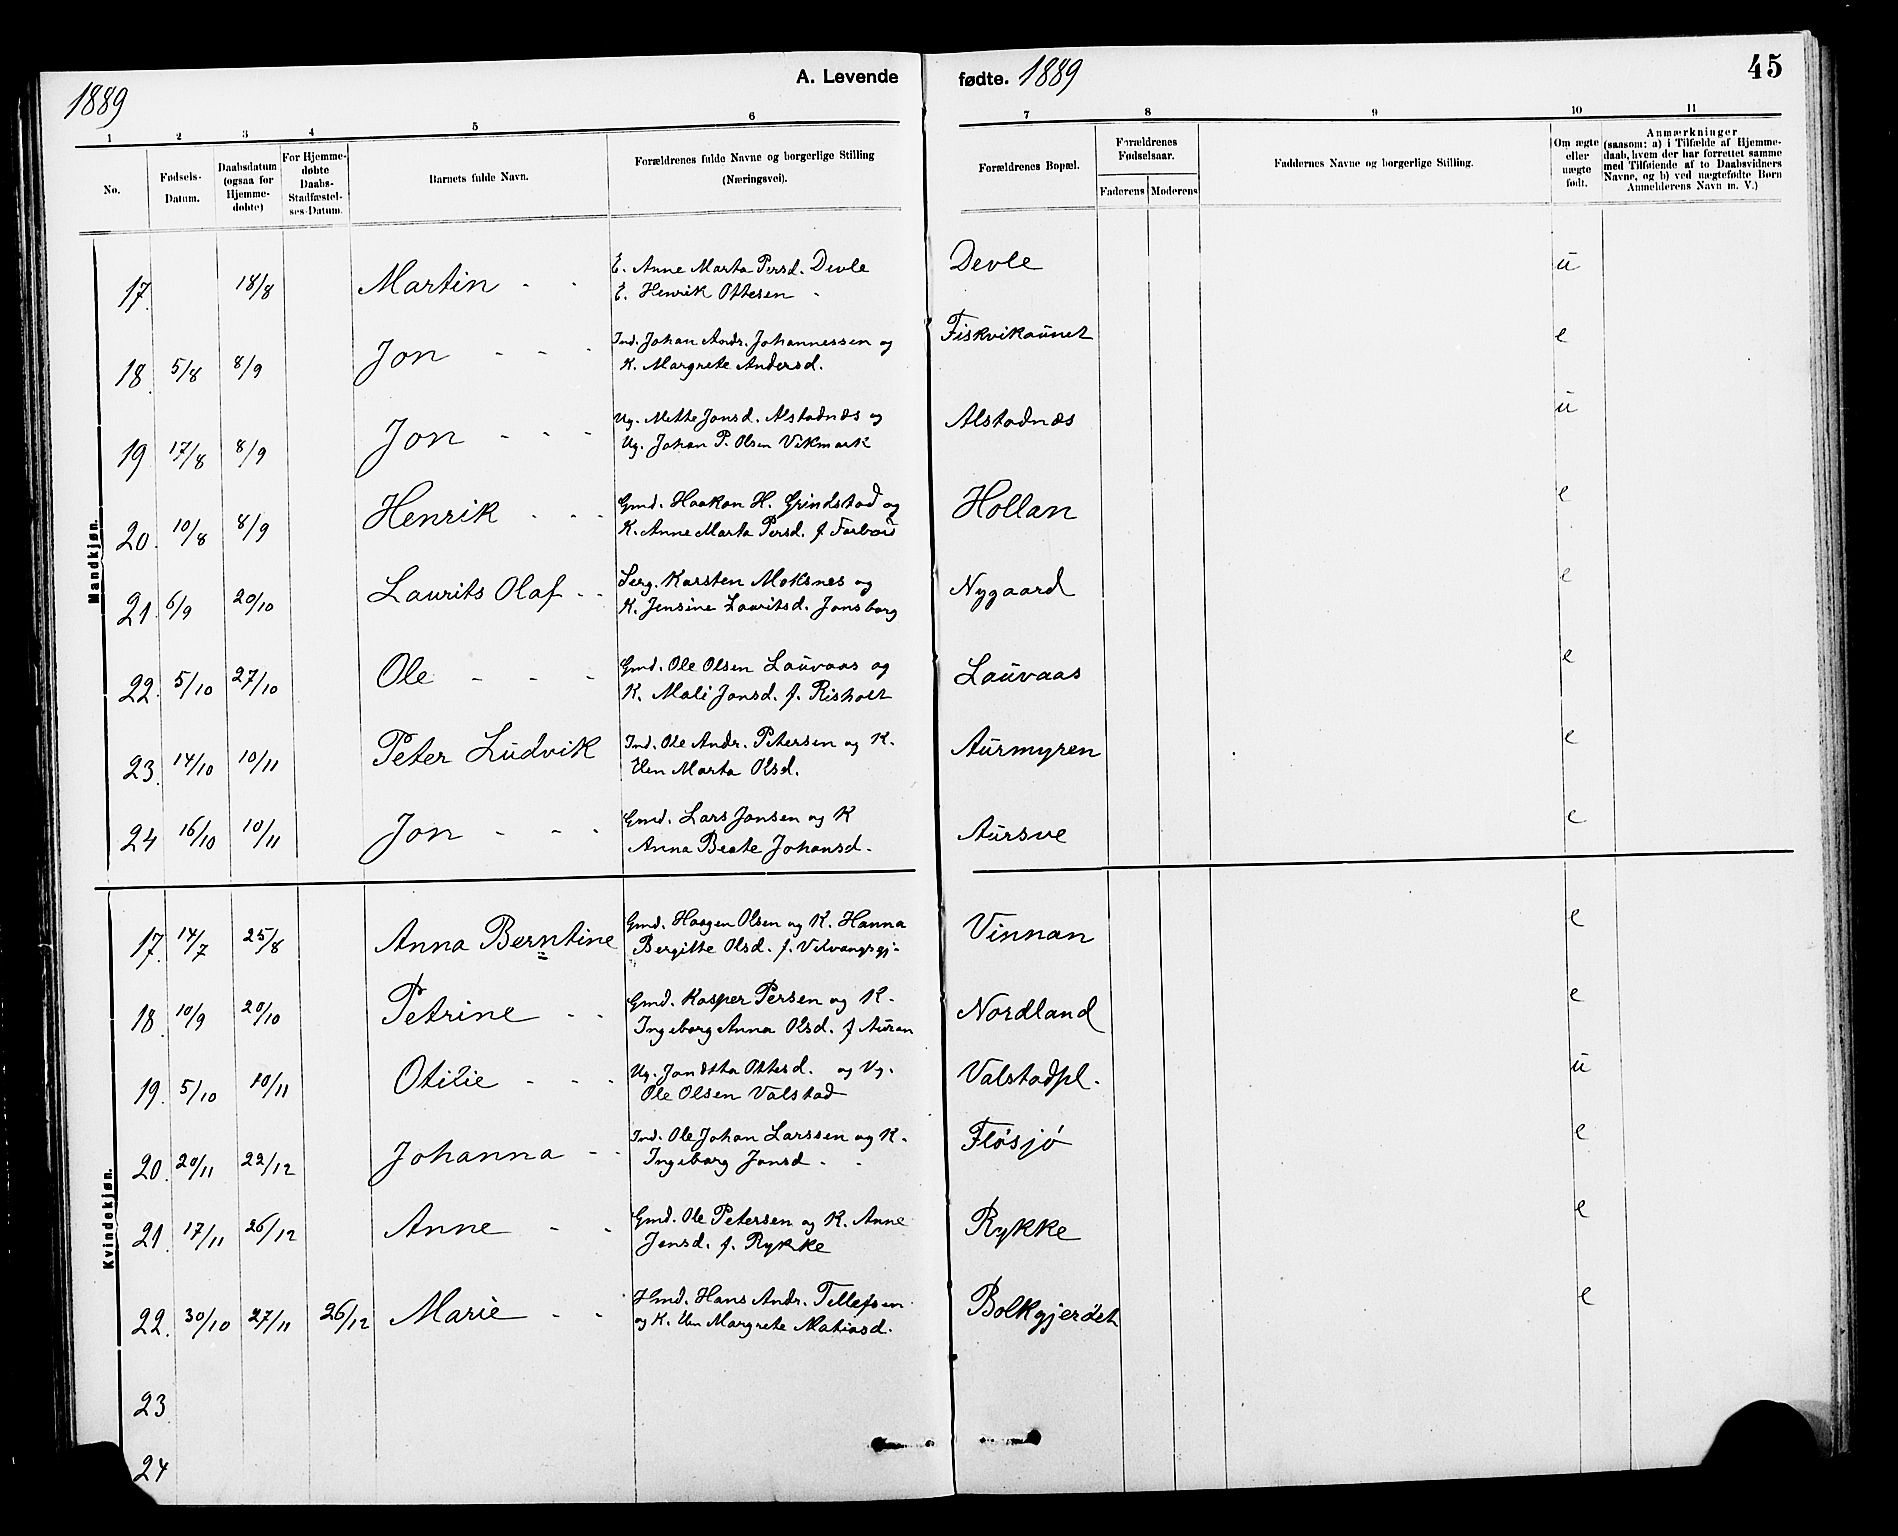 1889
A. Levende fødte. 1889
45
1 2 3 4 5 6 7 8 9 10 11
No.
Fødsels-Datum.
Daabsdatum (ogsaa for Hjemme-døbte)
For Hjemme-døbte Daabs-Stadfæstel-ses-Datum.
Barnets fulde Navn.
Forældrenes fulde Navne og borgerlige Stilling (Næringsvei).
Forældrenes Bopæl.
Forældrenes Fødselsaar.
Faderens Moderens
Faddernes Navne og borgerlige Stilling.
Om ægte eller uægte født.
Anmærkninger (saasom: a) i Tilfælde af Hjemme-daab, hvem der har forrettet samme med Tilføiende af to Daabsvidners Navne, og b) ved uægtefødte Børn Anmelderens Navn m. V.)
Mandkjøn.
17. 18/8 Martin - - E. Anne Marta Persd. Devle Devle u
E. Henrik Ottesen -
18. 5/8 8/9 Jon - - - Ind. Johan Andr. Johannessen og Fiskvikaunet e
K. Margrete Andersd.
19. 17/8 8/9 Jon - - - Ug. Mette Jonsd. Alstadnæs og Alstadnæs u
Ug. Johan P. Olsen Vikmark
20. 10/8 8/9 Henrik - - - Gmd. Haakon H. Grindstad og Hollan e
K. Anne Marta Persd. f
21. 6/9 20/10 Laurits Olaf - - Serg. Karsten Moksnes og Nygaard e
K. Jensine Lauritsd. Jonsborg
22. 5/10 27/10 Ole - - - Gmd. Ole Olsen Lauvaas og Lauvaas e
K. Mali Jonsd. f. Risholt
23. 14/10 10/11 Peter Ludvik Ind. Ole Andr. Petersen og K. Aurmyren e
Elen Marta Olsd.
24 16/10 10/11 Jon - - - Gmd. Lars Jonsen og K Aursve e
Anna Beate Johansd.
Kvindekjøn.
17. 14/7 25/8 Anna Berntine Gmd. Haagen Olsen og K. Hanna Vinnan e
Bergitte Olsd. f. Velvangsgj-
18. 10/9 20/10 Petrine - - Gmd. Kasper Persen og K. Nordland e
Ingeborg Anna Olsd. f Auran
19. 5/10 10/11 Otilie - - - Ug. Ottesd. og Ug. Valstadpl. u
Ole Olsen Valstad
20. 20/11 22/12 Johanna - - Ind. Ole Johan Larssen og K. Fløsjø e
Ingeborg Jonsd - -
21. 17/11 26/12 Anne - - Gmd. Ole Petersen og K. Anne Rykke e
Jonsd. f. Rykke
22. 30/10 27/11 26/12 Marie - - Hmd. Hans Andr. Tellefsen Bolkgjerdet e
og K. Elen Margrete Matiasd.
23
24